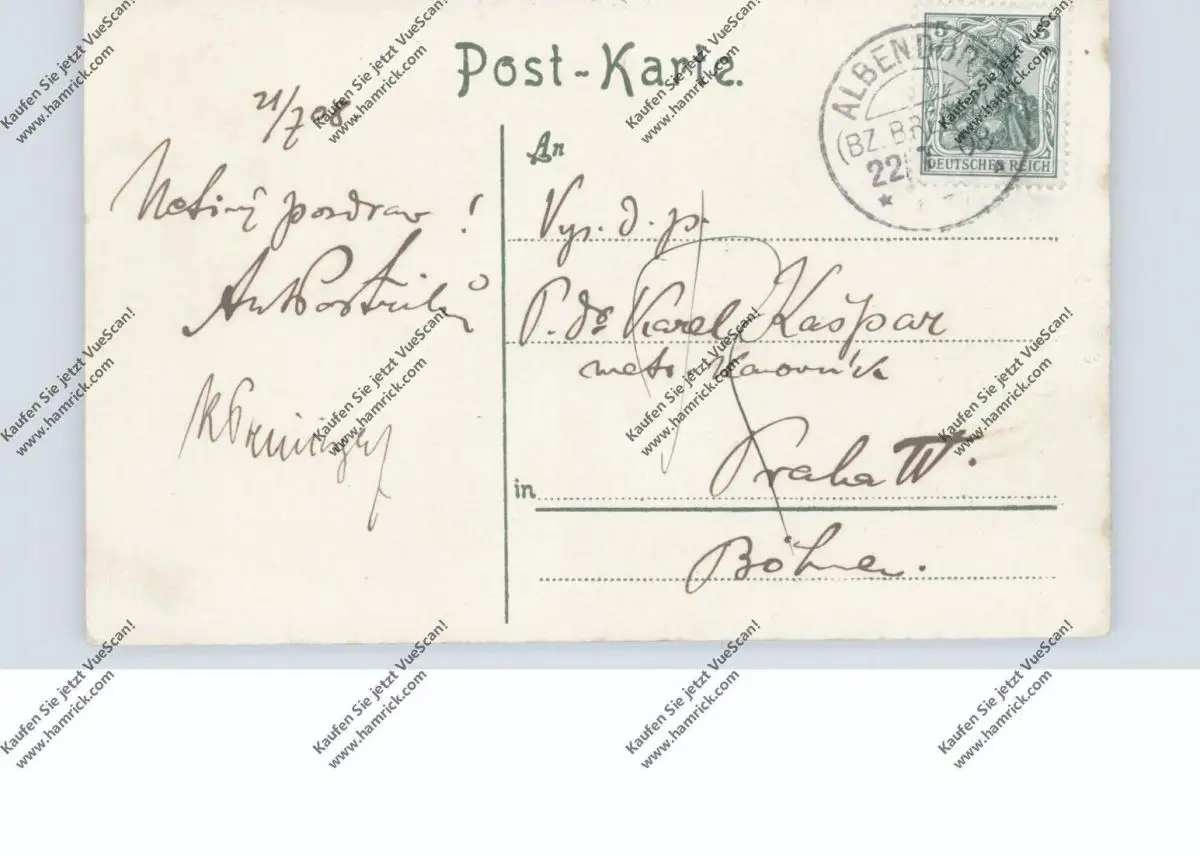 Post-Karte.
21/7 08.
pozdrav!
An
Vys. d. p.
P. Dr Karel Kašpar
metr. kanovník
in Praha IV.
Böhmen.
ALBENDORF
(BZ. BRE
22
08
5 5
DEUTSCHES REICH
Kaufen Sie jetzt VueScan!
www.hamrick.com
Kaufen Sie jetzt VueScan!
www.hamrick.com
Kaufen Sie jetzt VueScan!
www.hamrick.com
Kaufen Sie jetzt VueScan!
www.hamrick.com
Kaufen Sie jetzt VueScan!
www.hamrick.com
Kaufen Sie jetzt VueScan!
www.hamrick.com
Kaufen Sie jetzt VueScan!
www.hamrick.com
Kaufen Sie jetzt VueScan!
www.hamrick.com
Kaufen Sie jetzt VueScan!
www.hamrick.com
Kaufen Sie jetzt VueScan!
www.hamrick.com
Kaufen Sie jetzt VueScan!
www.hamrick.com
Kaufen Sie jetzt VueScan!
www.hamrick.com